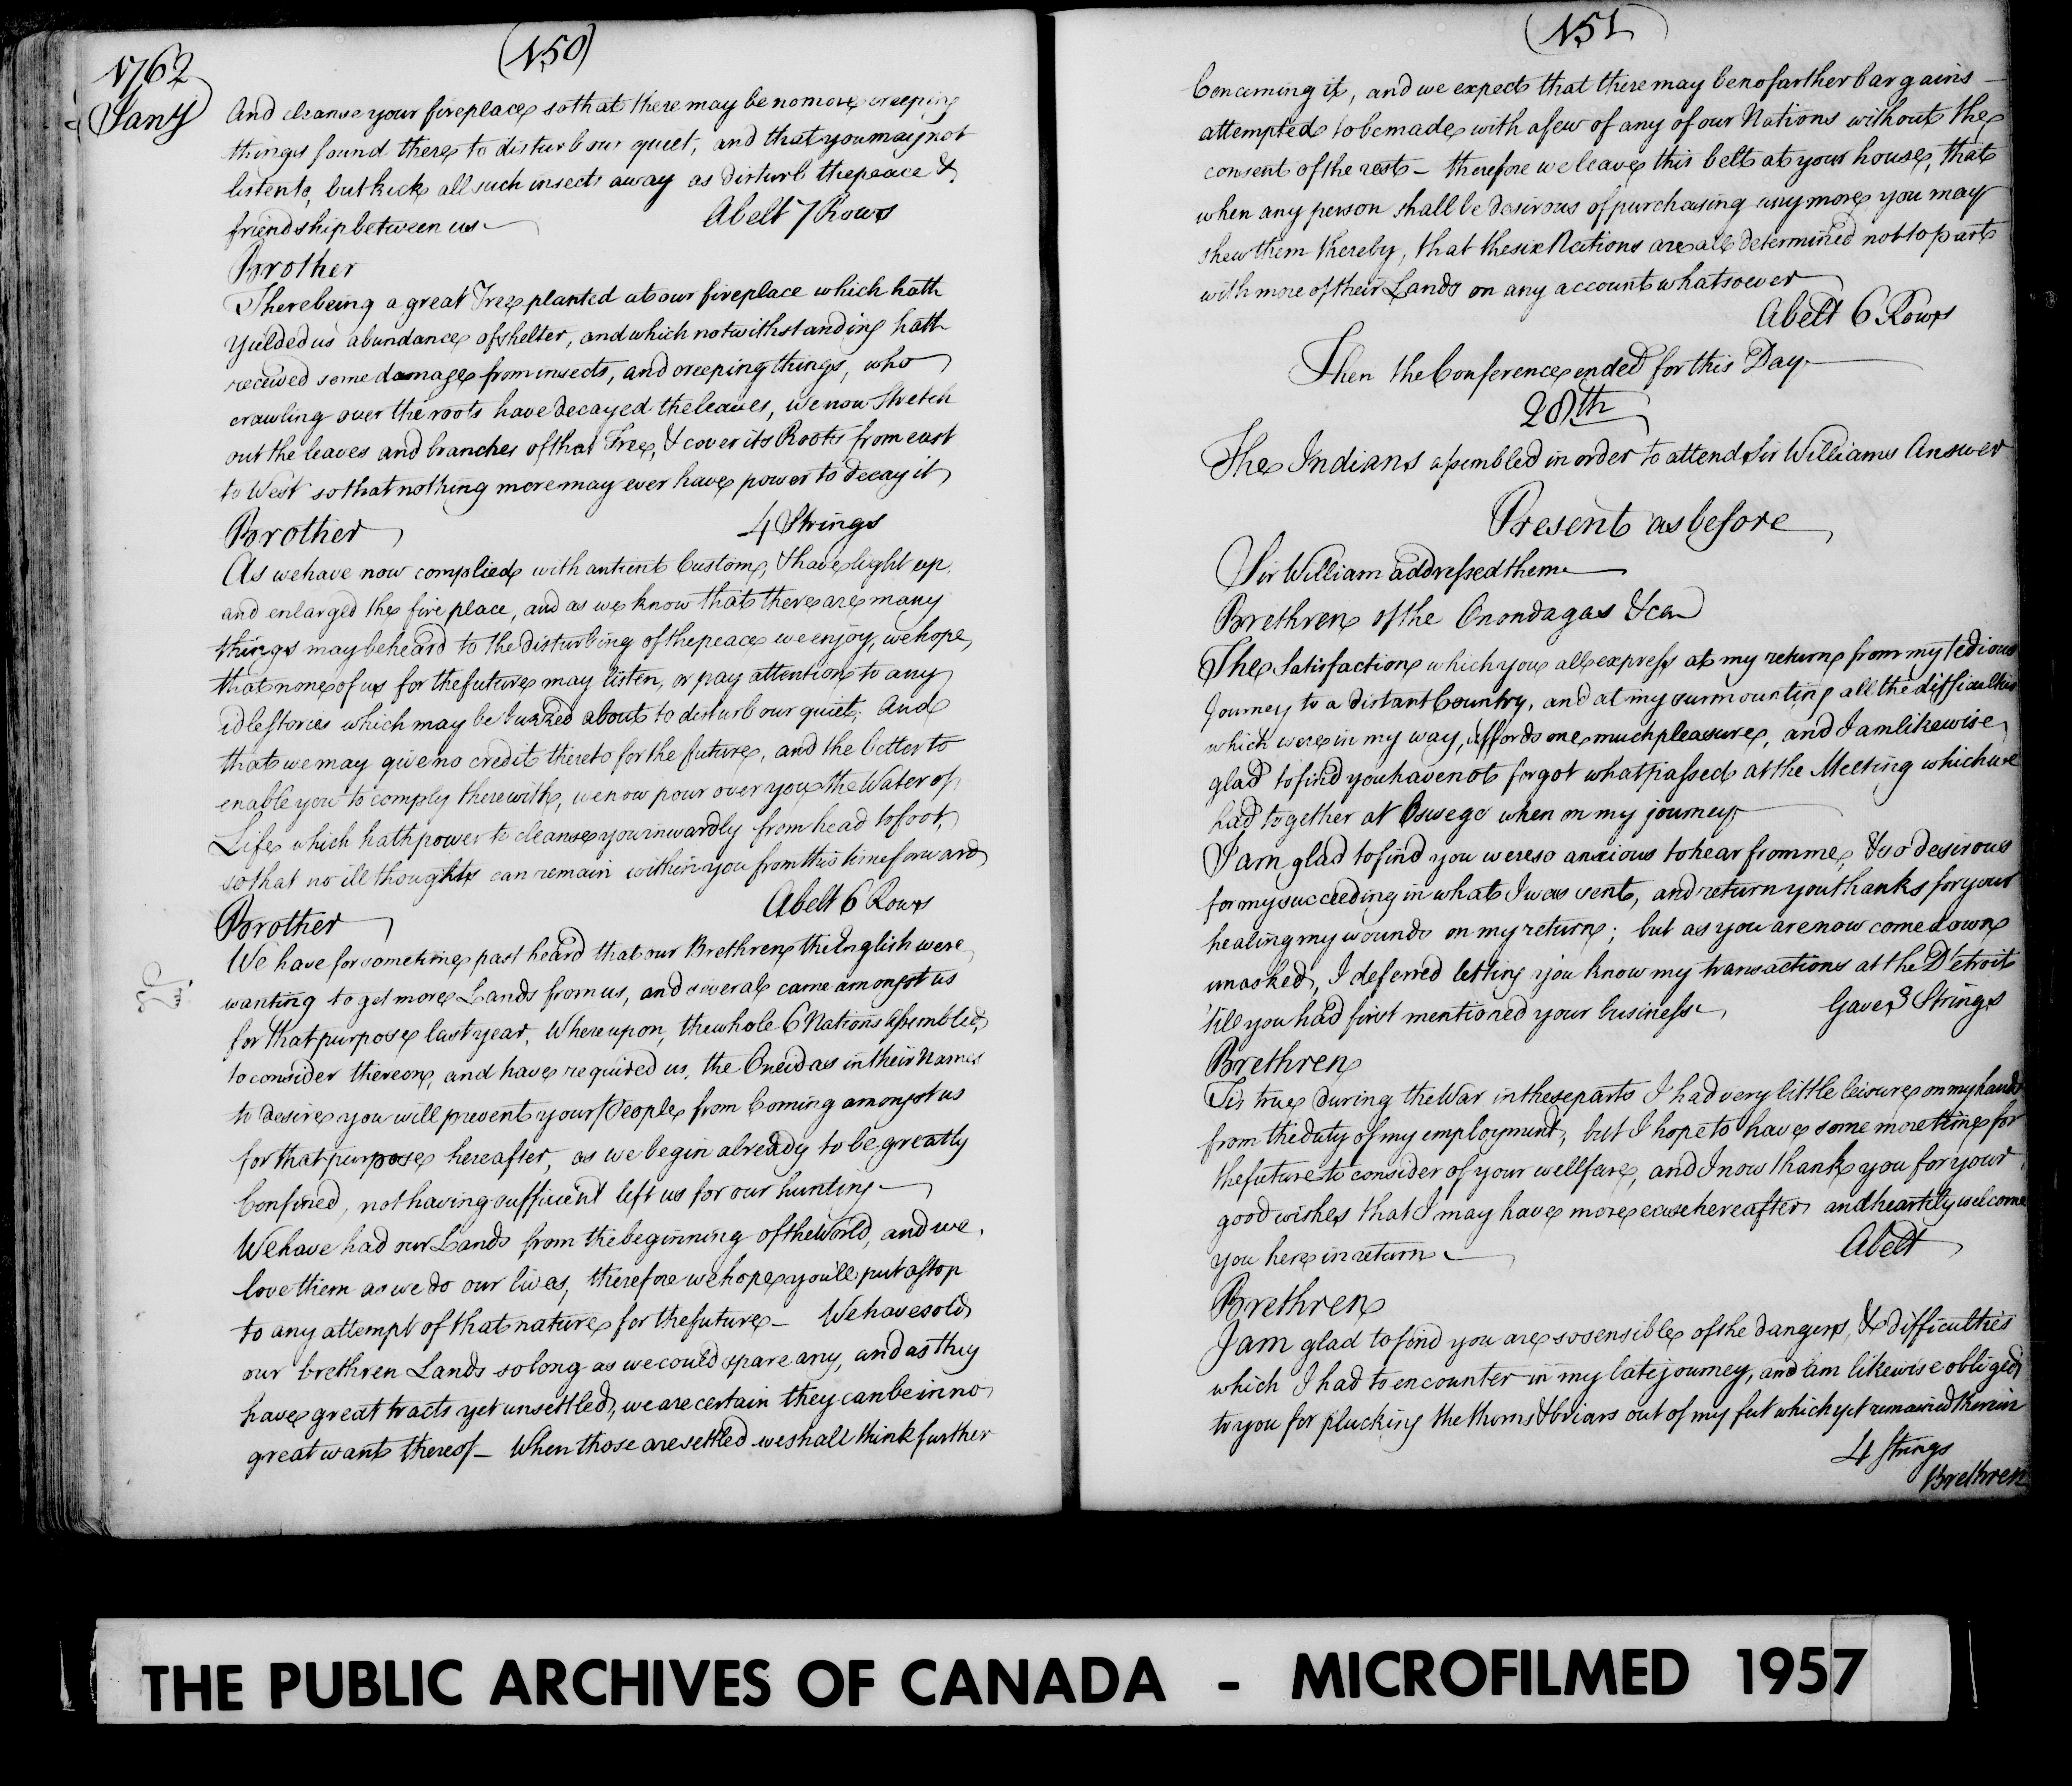 1762
Jany
(150)
And cleanse your fireplace so that there may be no more creeping
things found there to disturb our quiet, and that you may not
listen to, but kick all such insects away as disturb the peace &
friendship between us — A belt 7 Rows
Brother
There being a great Tree planted at our fireplace which hath
yielded us abundance of shelter, and which notwithstanding hath
received some damage from insects, and creeping things, who
crawling over the roots have decayed the leaves, we now stretch
out the leaves and branches of that Tree, & cover its Roots from east
to West so that nothing more may ever have power to decay it
4 Strings
Brother
As we have now complied with antient Custom, & have light up
and enlarged the fire place, and as we know that there are many
things may be heard to the disturbing of the peace we enjoy, we hope,
that none of us for the future may listen, or pay attention to any
idle stories which may be buzzed about to disturb our quiet; And
that we may give no credit thereto for the future, and the better to
enable you to comply therewith, we now pour over you the Water of
Life which hath power to cleanse you inwardly from head to foot,
so that no ill thoughts can remain within you from this time forward
A belt 6 Rows
Brother
We have for some time past heard that our Brethren the English were
wanting to get more Lands from us, and several came amongst us
for that purpose last year, Whereupon, the whole 6 Nations assembled,
to consider thereon, and have required us, the Oneidas in their Names
to desire you will prevent your People from Coming amongst us
for that purpose hereafter, as we begin already to be greatly
Confined, not having sufficient left us for our hunting —
We have had our Lands from the beginning of the World, and we
love them as we do our lives, therefore we hope you'll put a stop
to any attempt of that nature for the future — We have sold
our brethren Lands so long as we could spare any, and as they
have great tracts yet unsettled, we are certain they can be in no
great want thereof — When those are settled we shall think further
(151)
Concerning it, and we expect that there may be no farther bargains —
attempted to be made with a few of any of our Nations without the
consent of the rest — therefore we leave this belt at your house, that
when any person shall be desirous of purchasing any more you may
shew them thereby, that the six Nations are all determined not to part
with more of their Lands on any account whatsoever
A belt 6 Rows
Then the Conference ended for this Day —
28th
The Indians assembled in order to attend Sir Williams Answer
Present as before
Sir William addressed them —
Brethren of the Onondagas &ca
The Satisfaction which you all express at my return from my tedious
Journey to a distant Country, and at my surmounting all the difficulties
which were in my way, affords me much pleasure, and I am likewise
glad to find you have not forgot what passed at the Meeting which we
had together at Oswego when on my journey
I am glad to find you were so anxious to hear from me, & so desirous
for my succeeding in what I was sent, and return you thanks for your
healing my wounds on my return; but as you are now come down
unasked, I deferred letting you know my transactions at the Detroit
'till you had first mentioned your business — Gave 3 Strings
Brethren
Tis true during the War in these parts I had very little leisure on my hands
from the duty of my employment, but I hope to have some more time for
the future to consider of your wellfare, and I now thank you for your
good wishes that I may have more ease hereafter and heartily welcome
you here in return — A belt
Brethren
I am glad to find you are so sensible of the dangers, & difficulties
which I had to encounter in my late journey, and am likewise obliged
to you for plucking the thorns & briars out of my feet which yet remained therein
4 Strings
Brethren
THE PUBLIC ARCHIVES OF CANADA - MICROFILMED 1957